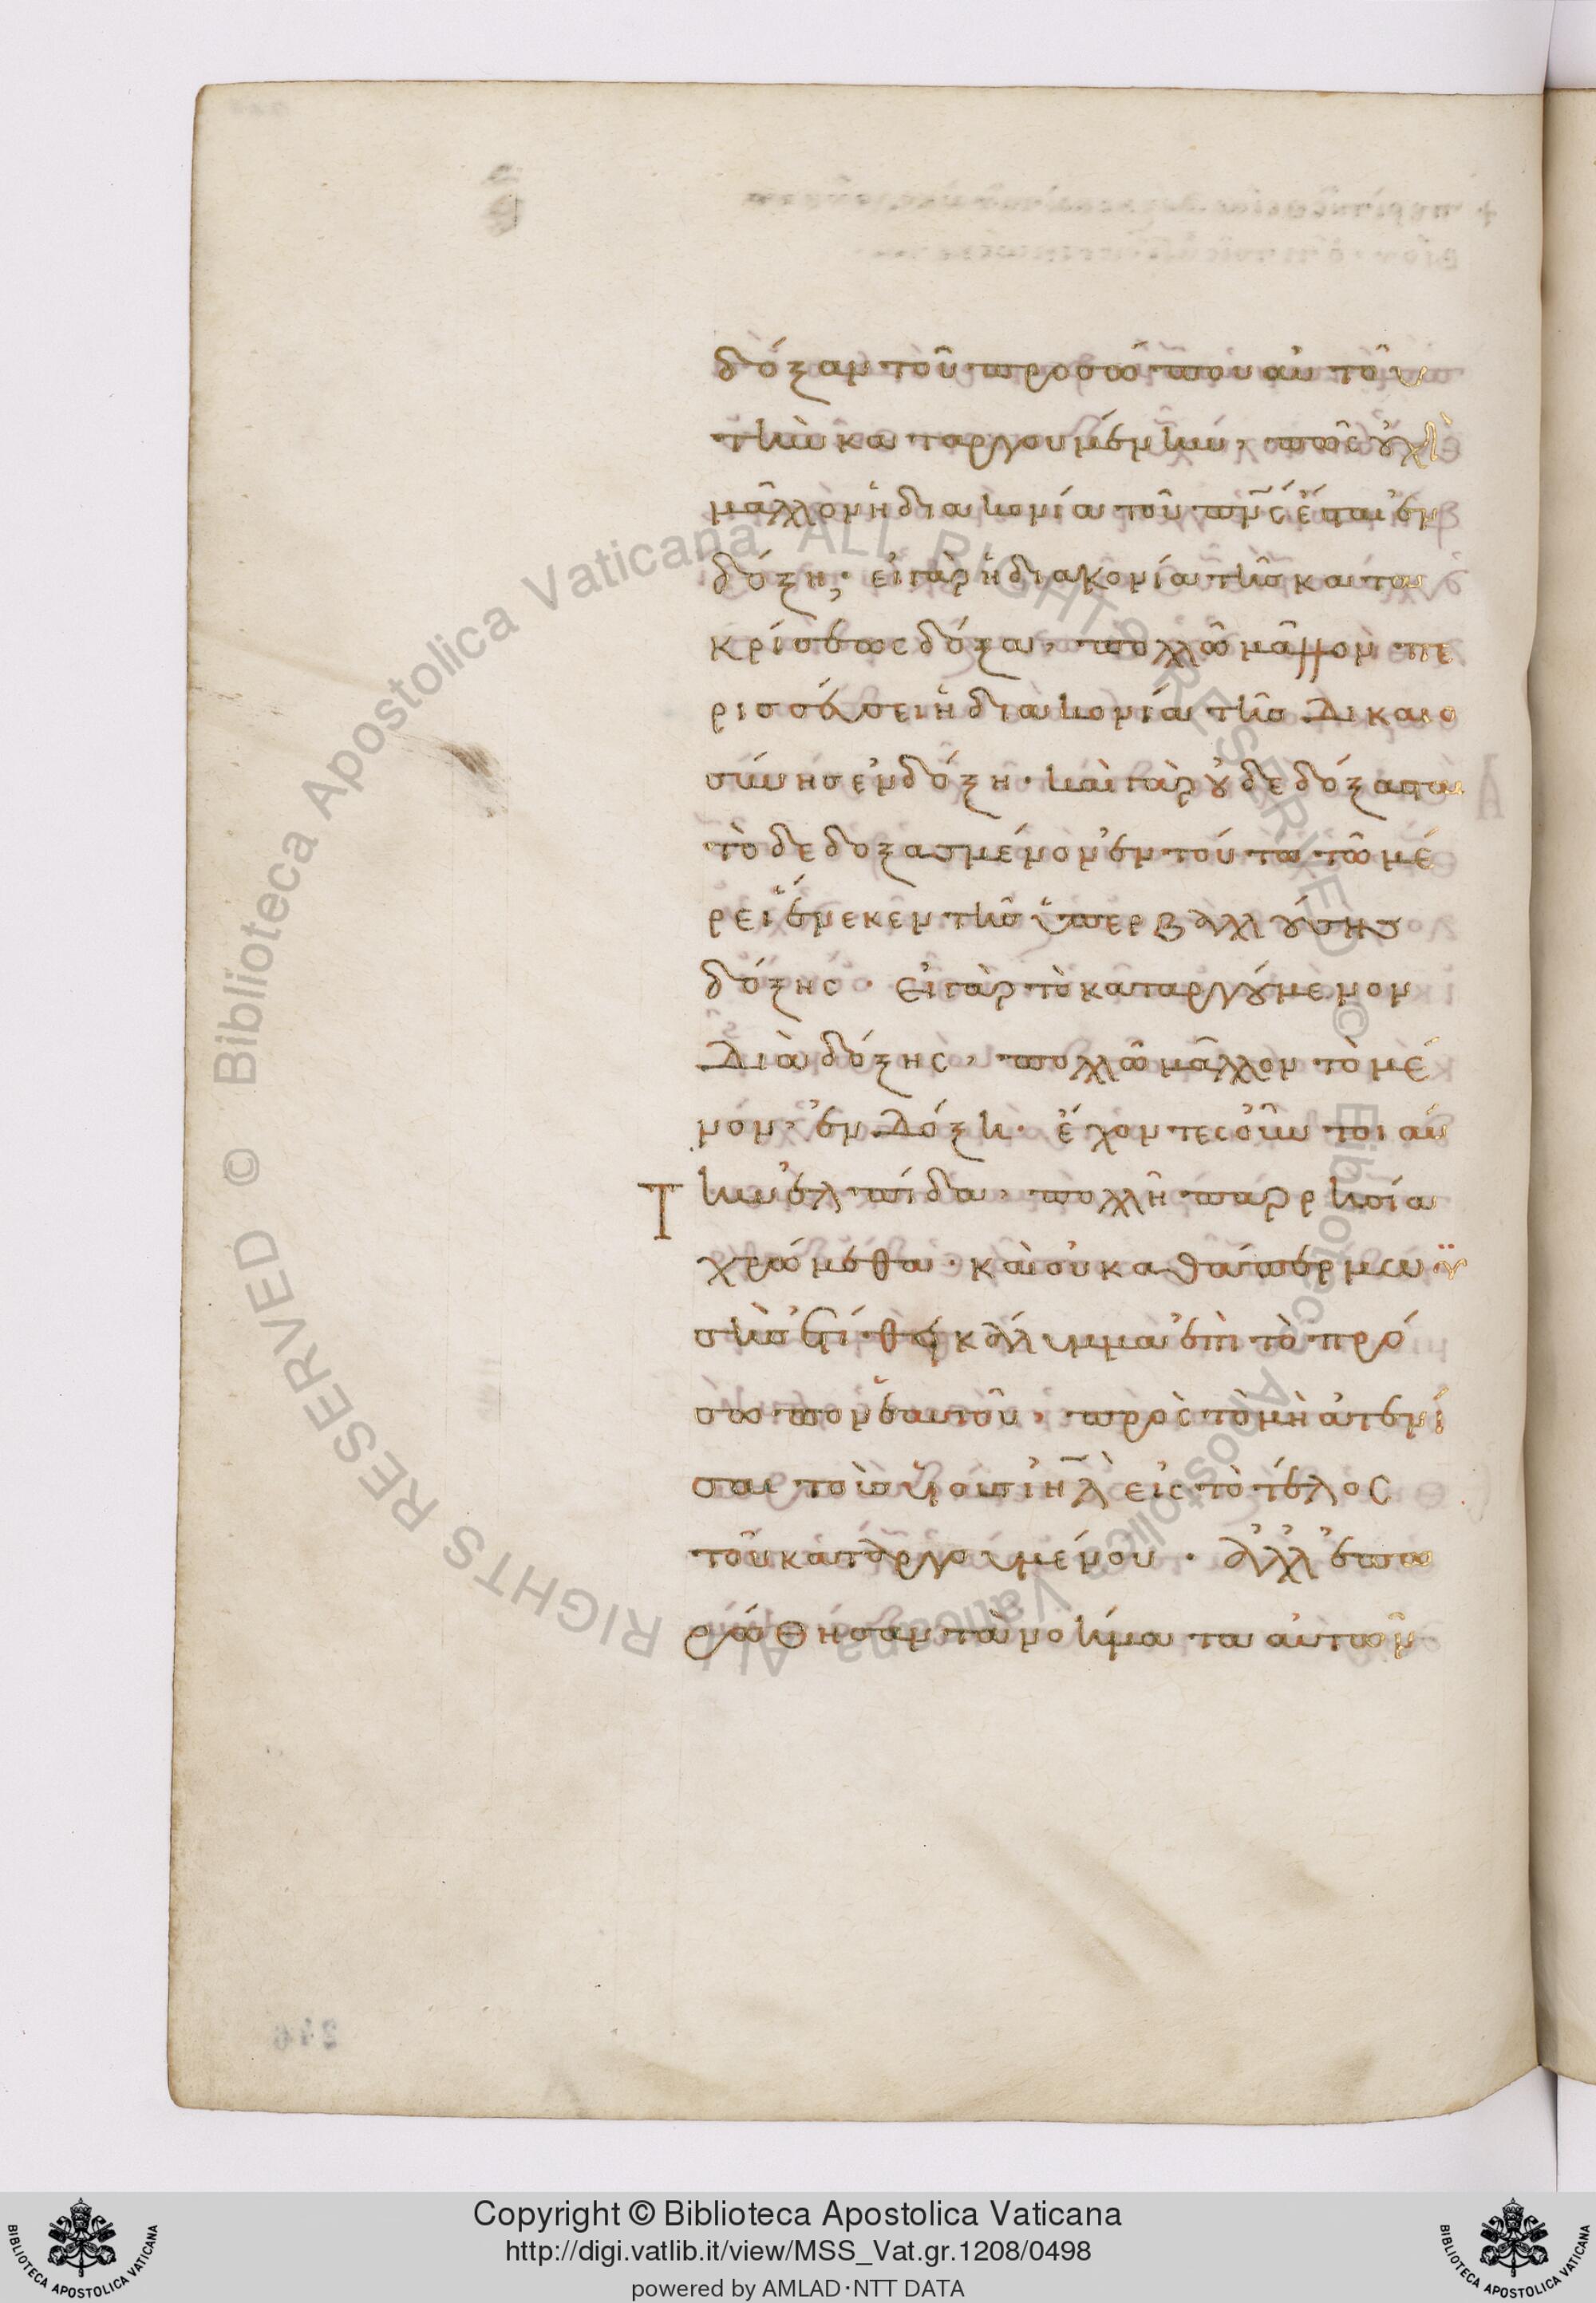 δόξαν τοῦ προσώπου αὐτοῦ
τὴν καταργουμένην, πῶς οὐχὶ
μᾶλλον ἡ διακονία τοῦ πνς ἔσται ἐν
δόξῃ; εἰ γὰρ ἡ διακονία τῆς κατα
κρίσεως δόξα, πολλῶ μᾶλλον πε
ρισσεύσει ἡ διακονία τῆς δικαιο
σύνης ἐν δόξη · καὶ γὰρ οὐ δεδόξασται
τὸ δεδοξασμένον ἐν τούτω τῶ μέ
ρει ἕνεκεν τῆς ὑπερβαλλούσης
δόξης · εἰ γὰρ τὸ καταργούμενον
διὰ δόξης, πολλῶ μᾶλλον τὸ μέ
νον ἐν δόξη · ἔχοντες οὖν τοιαύ
Την ἐλπίδα, πολλῆ παρρησία
χρώμεθα · καὶ οὐ καθάπερ μωϋ
σῆς ἐτίθει κάλυμμα ἐπὶ τὸ πρό
σωπον ἑαυτοῦ, πρὸς τὸ μὴ ἀτενί
σαι τοὺς υἱοὺς ἰηλ εἰς τὸ τέλος
τοῦ καταργουμένου · ἀλλ' ἐπω
ρώθησαν τὰ νοήματα αὐτῶν
246
© Biblioteca Apostolica Vaticana ALL RIGHTS RESERVED © Biblioteca Apostolica Vaticana ALL RIGHTS RESERVED
BIBLIOTECA APOSTOLICA VATICANA
Copyright © Biblioteca Apostolica Vaticana
http://digi.vatlib.it/view/MSS_Vat.gr.1208/0498
powered by AMLAD·NTT DATA
BIBLIOTECA APOSTOLICA VATICANA